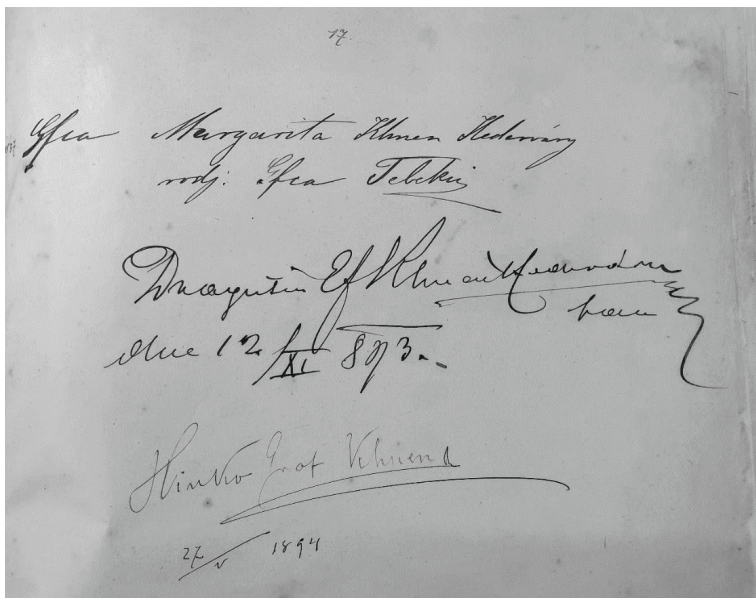 17.
Gfca Margarita Khuen Hedervary
rodj. Gfca Teleki
Dragutin Gf Khuen Hedervàry
ban
dne 12/XI 893.
Hinko Grof Khuend
27/V 1894